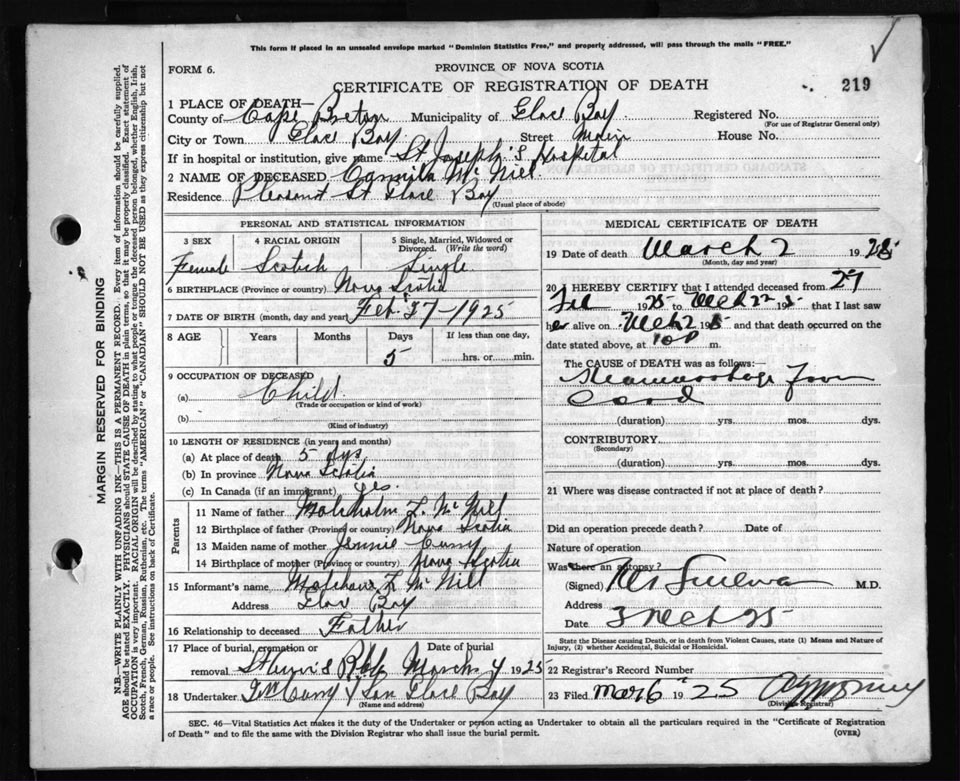 This form if placed in an unsealed envelope marked "Dominion Statistics Free," and properly addressed, will pass through the mails "FREE."
FORM 6.
PROVINCE OF NOVA SCOTIA
CERTIFICATE OF REGISTRATION OF DEATH
219
1 PLACE OF DEATH—
County of Cape Breton Municipality of Glace Bay Registered No.
(For use of Registrar General only)
City or Town Glace Bay Street Main House No.
If in hospital or institution, give name St Joseph's Hospital
2 NAME OF DECEASED Camila McNiel.
Residence Pleasant St Glace Bay
(Usual place of abode)
PERSONAL AND STATISTICAL INFORMATION
3 SEX 4 RACIAL ORIGIN 5 Single, Married, Widowed or Divorced. (Write the word)
Female Scotish Single
6 BIRTHPLACE (Province or country) Nova Scotia
7 DATE OF BIRTH (month, day and year) Feb. 27-1925
8 AGE Years Months Days If less than one day,
5 hrs. or min.
9 OCCUPATION OF DECEASED
(a) Child.
(Trade or occupation or kind of work)
(b)
(Kind of industry)
10 LENGTH OF RESIDENCE (in years and months)
(a) At place of death 5 dys
(b) In province Nova Scotia
(c) In Canada (if an immigrant) yes.
Parents
11 Name of father L. McNiel
12 Birthplace of father (Province or country) Nova Scotia
13 Maiden name of mother Jennie Curry
14 Birthplace of mother (Province or country) Nova Scotia
15 Informant's name L McNiel
Address Glace Bay
16 Relationship to deceased Father
17 Place of burial, cremation or removal Date of burial
March 4 1925
18 Undertaker Curry & Son Glace Bay
(Name and address)
MEDICAL CERTIFICATE OF DEATH
19 Date of death March 2 1925
(Month, day and year)
20 I HEREBY CERTIFY that I attended deceased from 27
Feb 1925 to Mch 2 that I last saw
her alive on Mch 2 and that death occurred on the
date stated above, at m.
The CAUSE OF DEATH was as follows:
Heamorrhage from
Cord
(duration) yrs. mos. dys.
CONTRIBUTORY
(Secondary)
(duration) yrs. mos. dys.
21 Where was disease contracted if not at place of death?
Did an operation precede death? Date of
Nature of operation
Was there an autopsy?
(Signed) M.D.
Address
Date 3 Mch 25
State the Disease causing Death, or in death from Violent Causes, state (1) Means and Nature of
Injury, (2) whether Accidental, Suicidal or Homicidal.
22 Registrar's Record Number
23 Filed Mar 6 1925
(Division Registrar)
SEC. 46—Vital Statistics Act makes it the duty of the Undertaker or person acting as Undertaker to obtain all the particulars required in the "Certificate of Registration
of Death" and to file the same with the Division Registrar who shall issue the burial permit. (OVER)
MARGIN RESERVED FOR BINDING
N.B.—WRITE PLAINLY WITH UNFADING INK—THIS IS A PERMANENT RECORD. Every item of information should be carefully supplied.
AGE should be stated EXACTLY. PHYSICIANS should STATE CAUSE OF DEATH in plain terms, so that it may be properly classified. Exact statement of
OCCUPATION is very important. RACIAL ORIGIN will be described by stating to what people or tongue the deceased person belonged, whether English, Irish,
Scotch, French, German, Russian, Ruthenian, etc. The terms "AMERICAN" or "CANADIAN" SHOULD NOT BE USED as they express citizenship but not
a race or people. See instructions on back of Certificate.